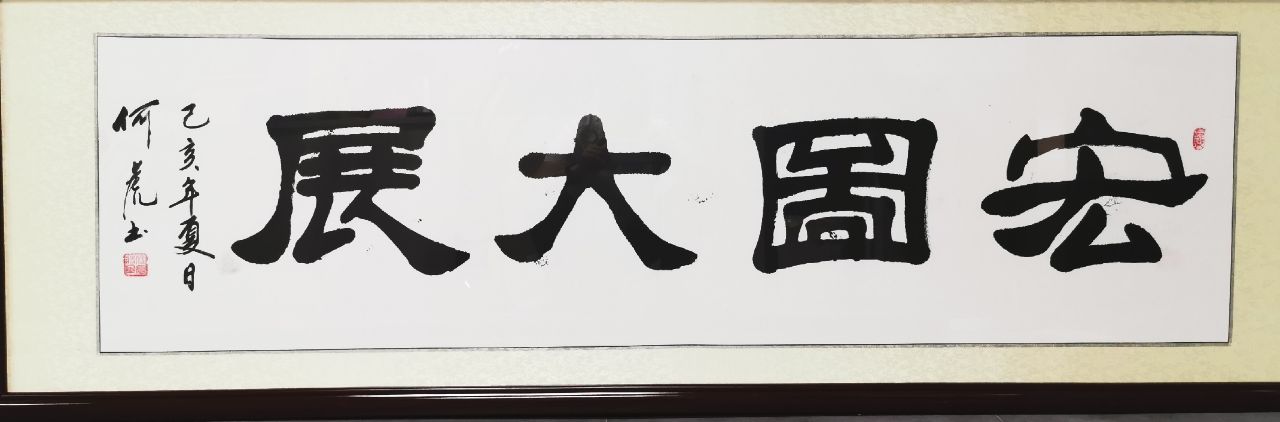 宏圖大展
己亥年夏日
何虎书